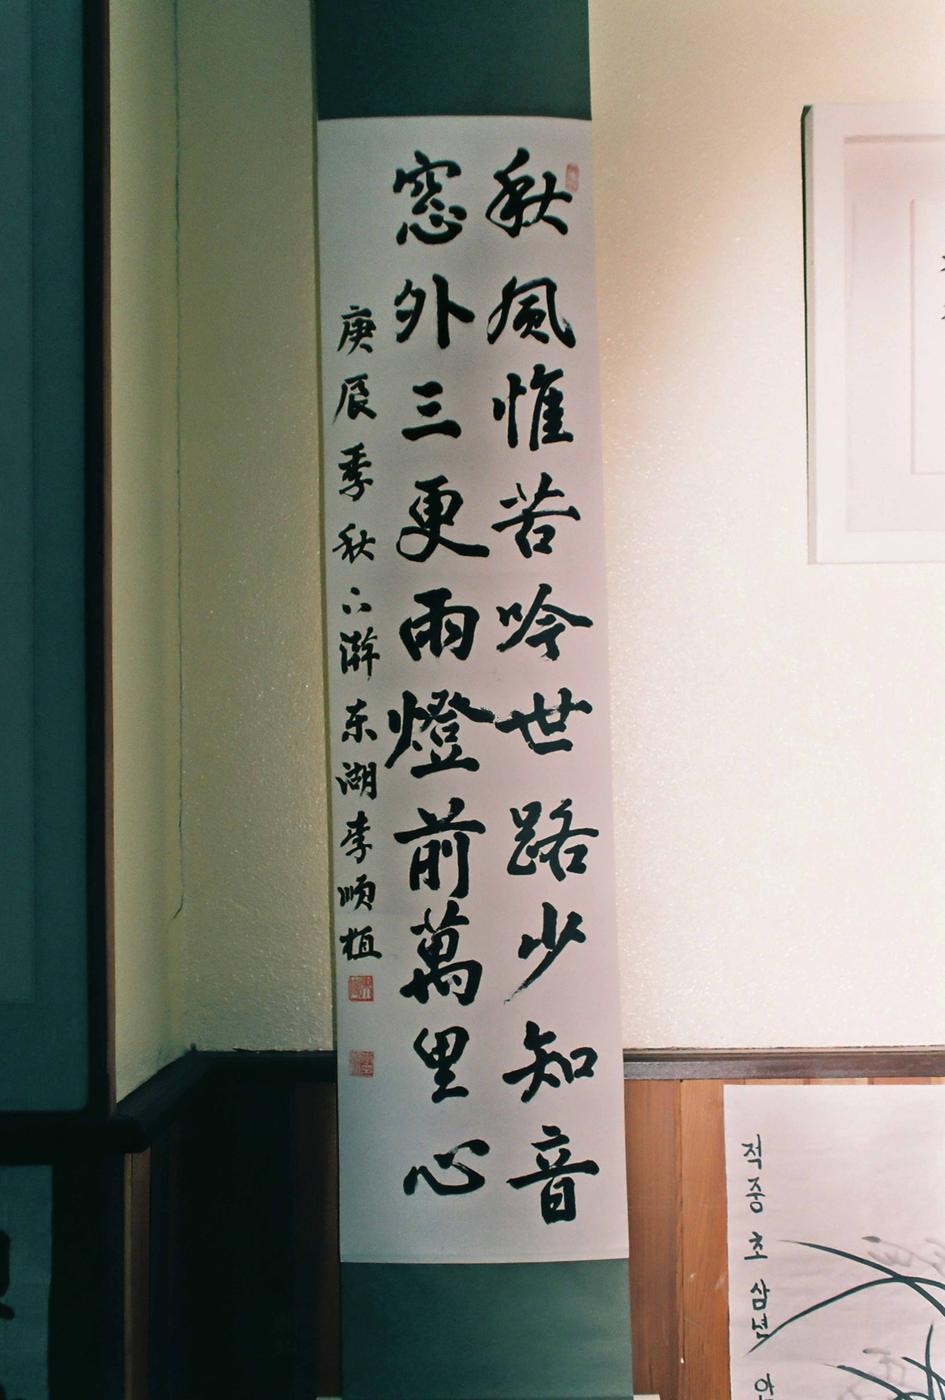 秋風惟苦吟世路少知音
窓外三更雨燈前萬里心
庚辰季秋 東湖李順植
적중 초 삼년